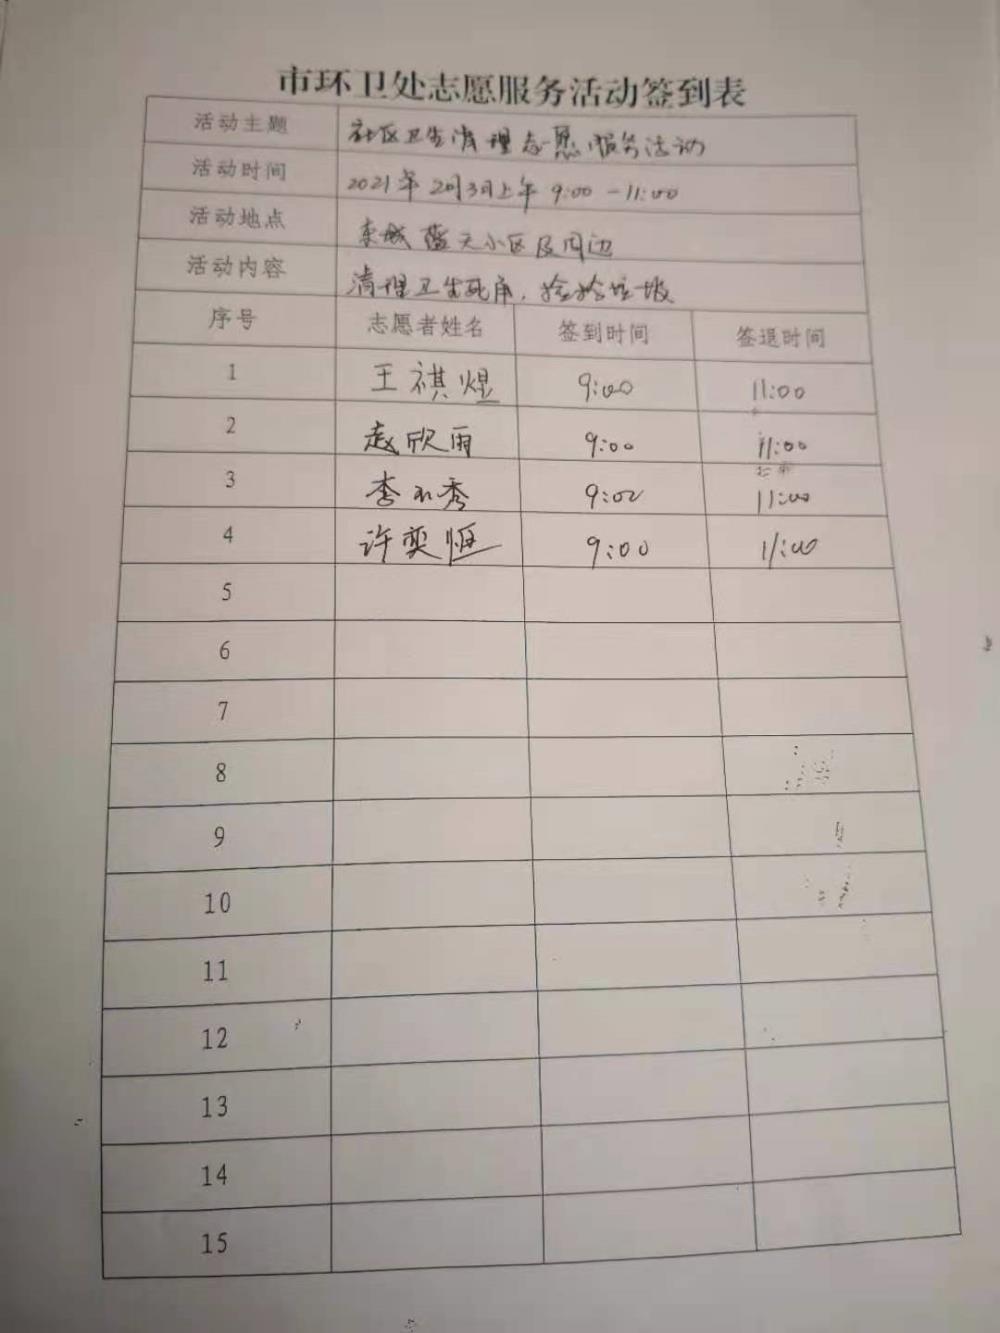 市环卫处志愿服务活动签到表
活动主题 社区卫生清理志愿服务活动
活动时间 2021年2月3日上午 9:00-11:00
活动地点 东城蓝天小区及周边
活动内容 清理卫生死角,捡拾垃圾
序号 志愿者姓名 签到时间 签退时间
1 王祺煜 9:00 11:00
2 赵欣雨 9:00 11:00
3 李 秀 9:00 11:00
4 许奕恒 9:00 11:00
5
6
7
8
9
10
11
12
13
14
15